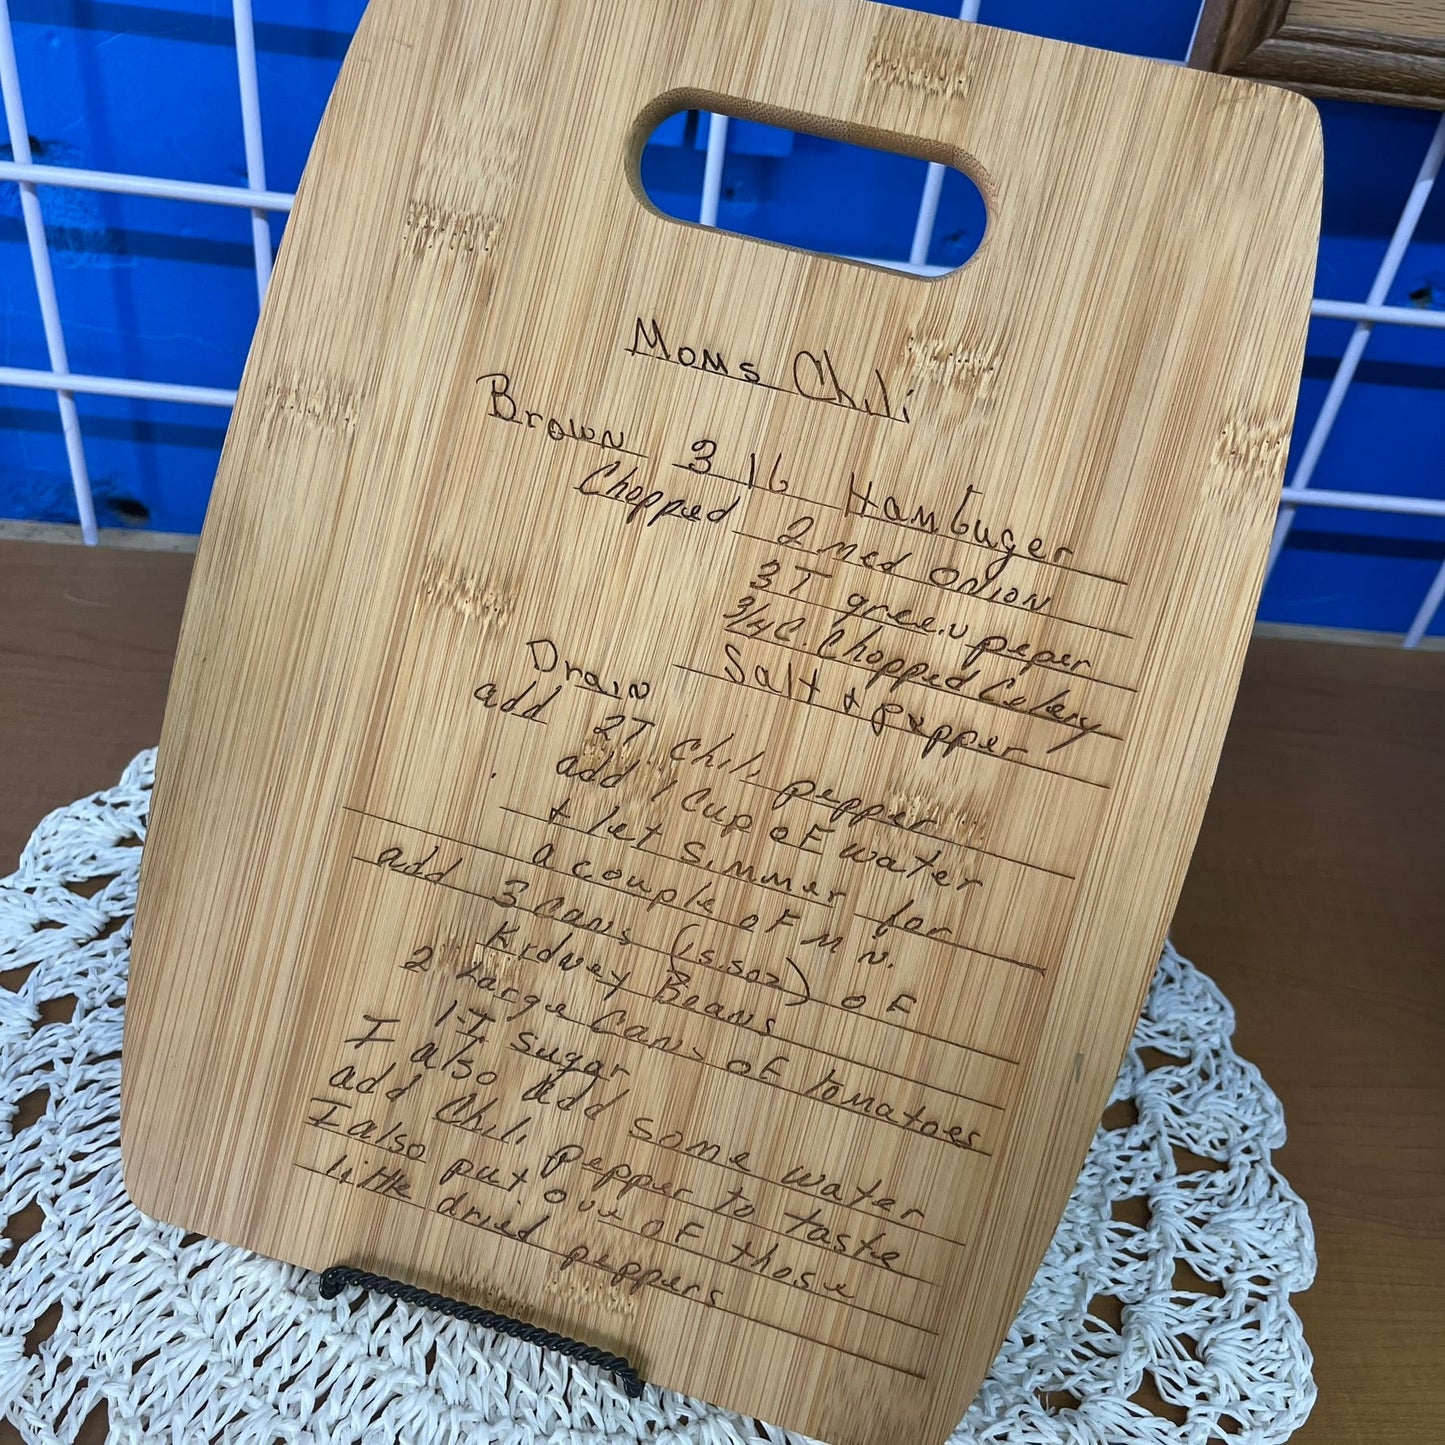 Moms Chili
Brown 3 lb Hambuger
Chopped 2 med onion
3 T green peper
3/4 C. Chopped Celery
Salt + pepper
Drain
add 2T Chili pepper
add 1 Cup of water
+ let simmer for
a couple of mn.
add 3 Cans (15.5oz) of
Kidney Beans
2 Large Cans of tomatoes
1-T sugar
I also add some water
add Chili pepper to taste
I also put one of those
little dried peppers